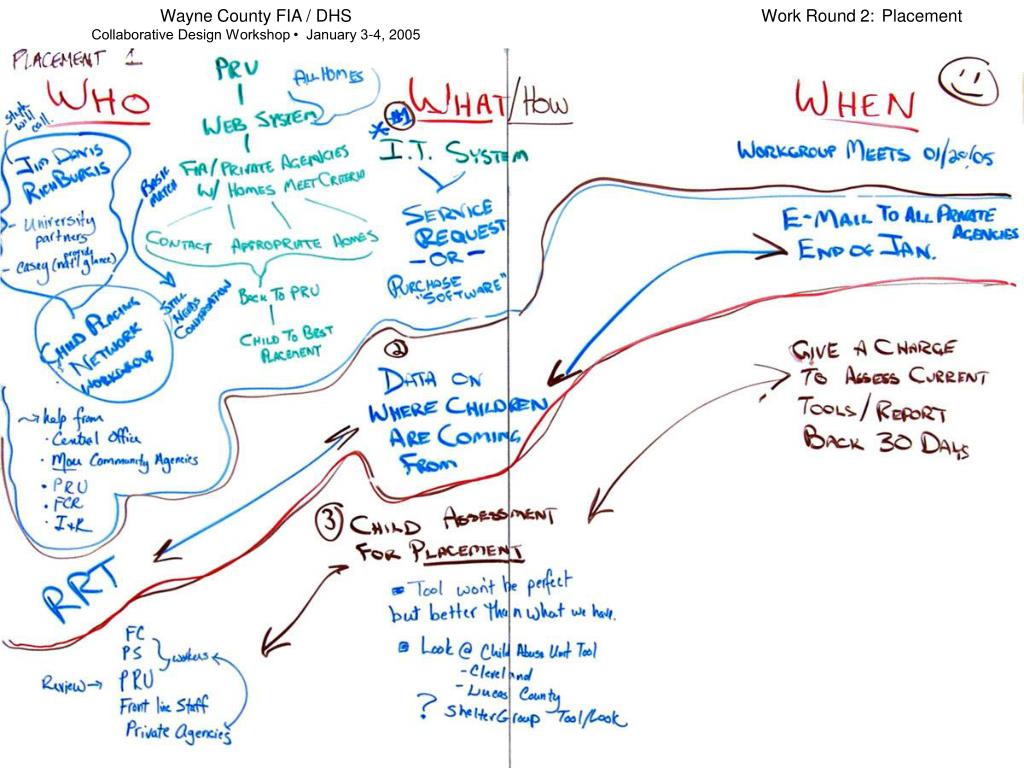 Wayne County FIA / DHS
Collaborative Design Workshop • January 3-4, 2005
Work Round 2: Placement
PLACEMENT 1
WHO
Staff will call
JIM DAVIS
RICH BURGIS
- University partners
- Casey (nat'l glance)
provide
CHILD PLACING
NETWORK
WORKGROUP
help from
· Central Office
· More Community Agencies
· PRU
· FCR
· I+R
PRU
ALL HOMES
WEB SYSTEM
FIA/PRIVATE AGENCIES
W/ HOMES MEET CRITERIA
BASIC MATCH
CONTACT APPROPRIATE HOMES
STILL NEEDS CONVERSATION
BACK TO PRU
CHILD TO BEST
PLACEMENT
WHAT/HOW
#1
I.T. SYSTEM
SERVICE
REQUEST
-OR-
PURCHASE
"SOFTWARE"
2
DATA ON
WHERE CHILDREN
ARE COMING
FROM
RRT
3 CHILD ASSESSMENT
FOR PLACEMENT
Tool won't be perfect
but better than what we have.
Look @ Child Abuse Unit Tool
- Cleveland
- Lucas County
? Shelter Group Tool/Look
FC
PS
workers
Review → PRU
Front line Staff
Private Agencies
WHEN
WORKGROUP MEETS 01/20/05
E-MAIL TO ALL PRIVATE
AGENCIES
END OF JAN.
GIVE A CHARGE
TO ASSESS CURRENT
TOOLS/REPORT
BACK 30 DAYS